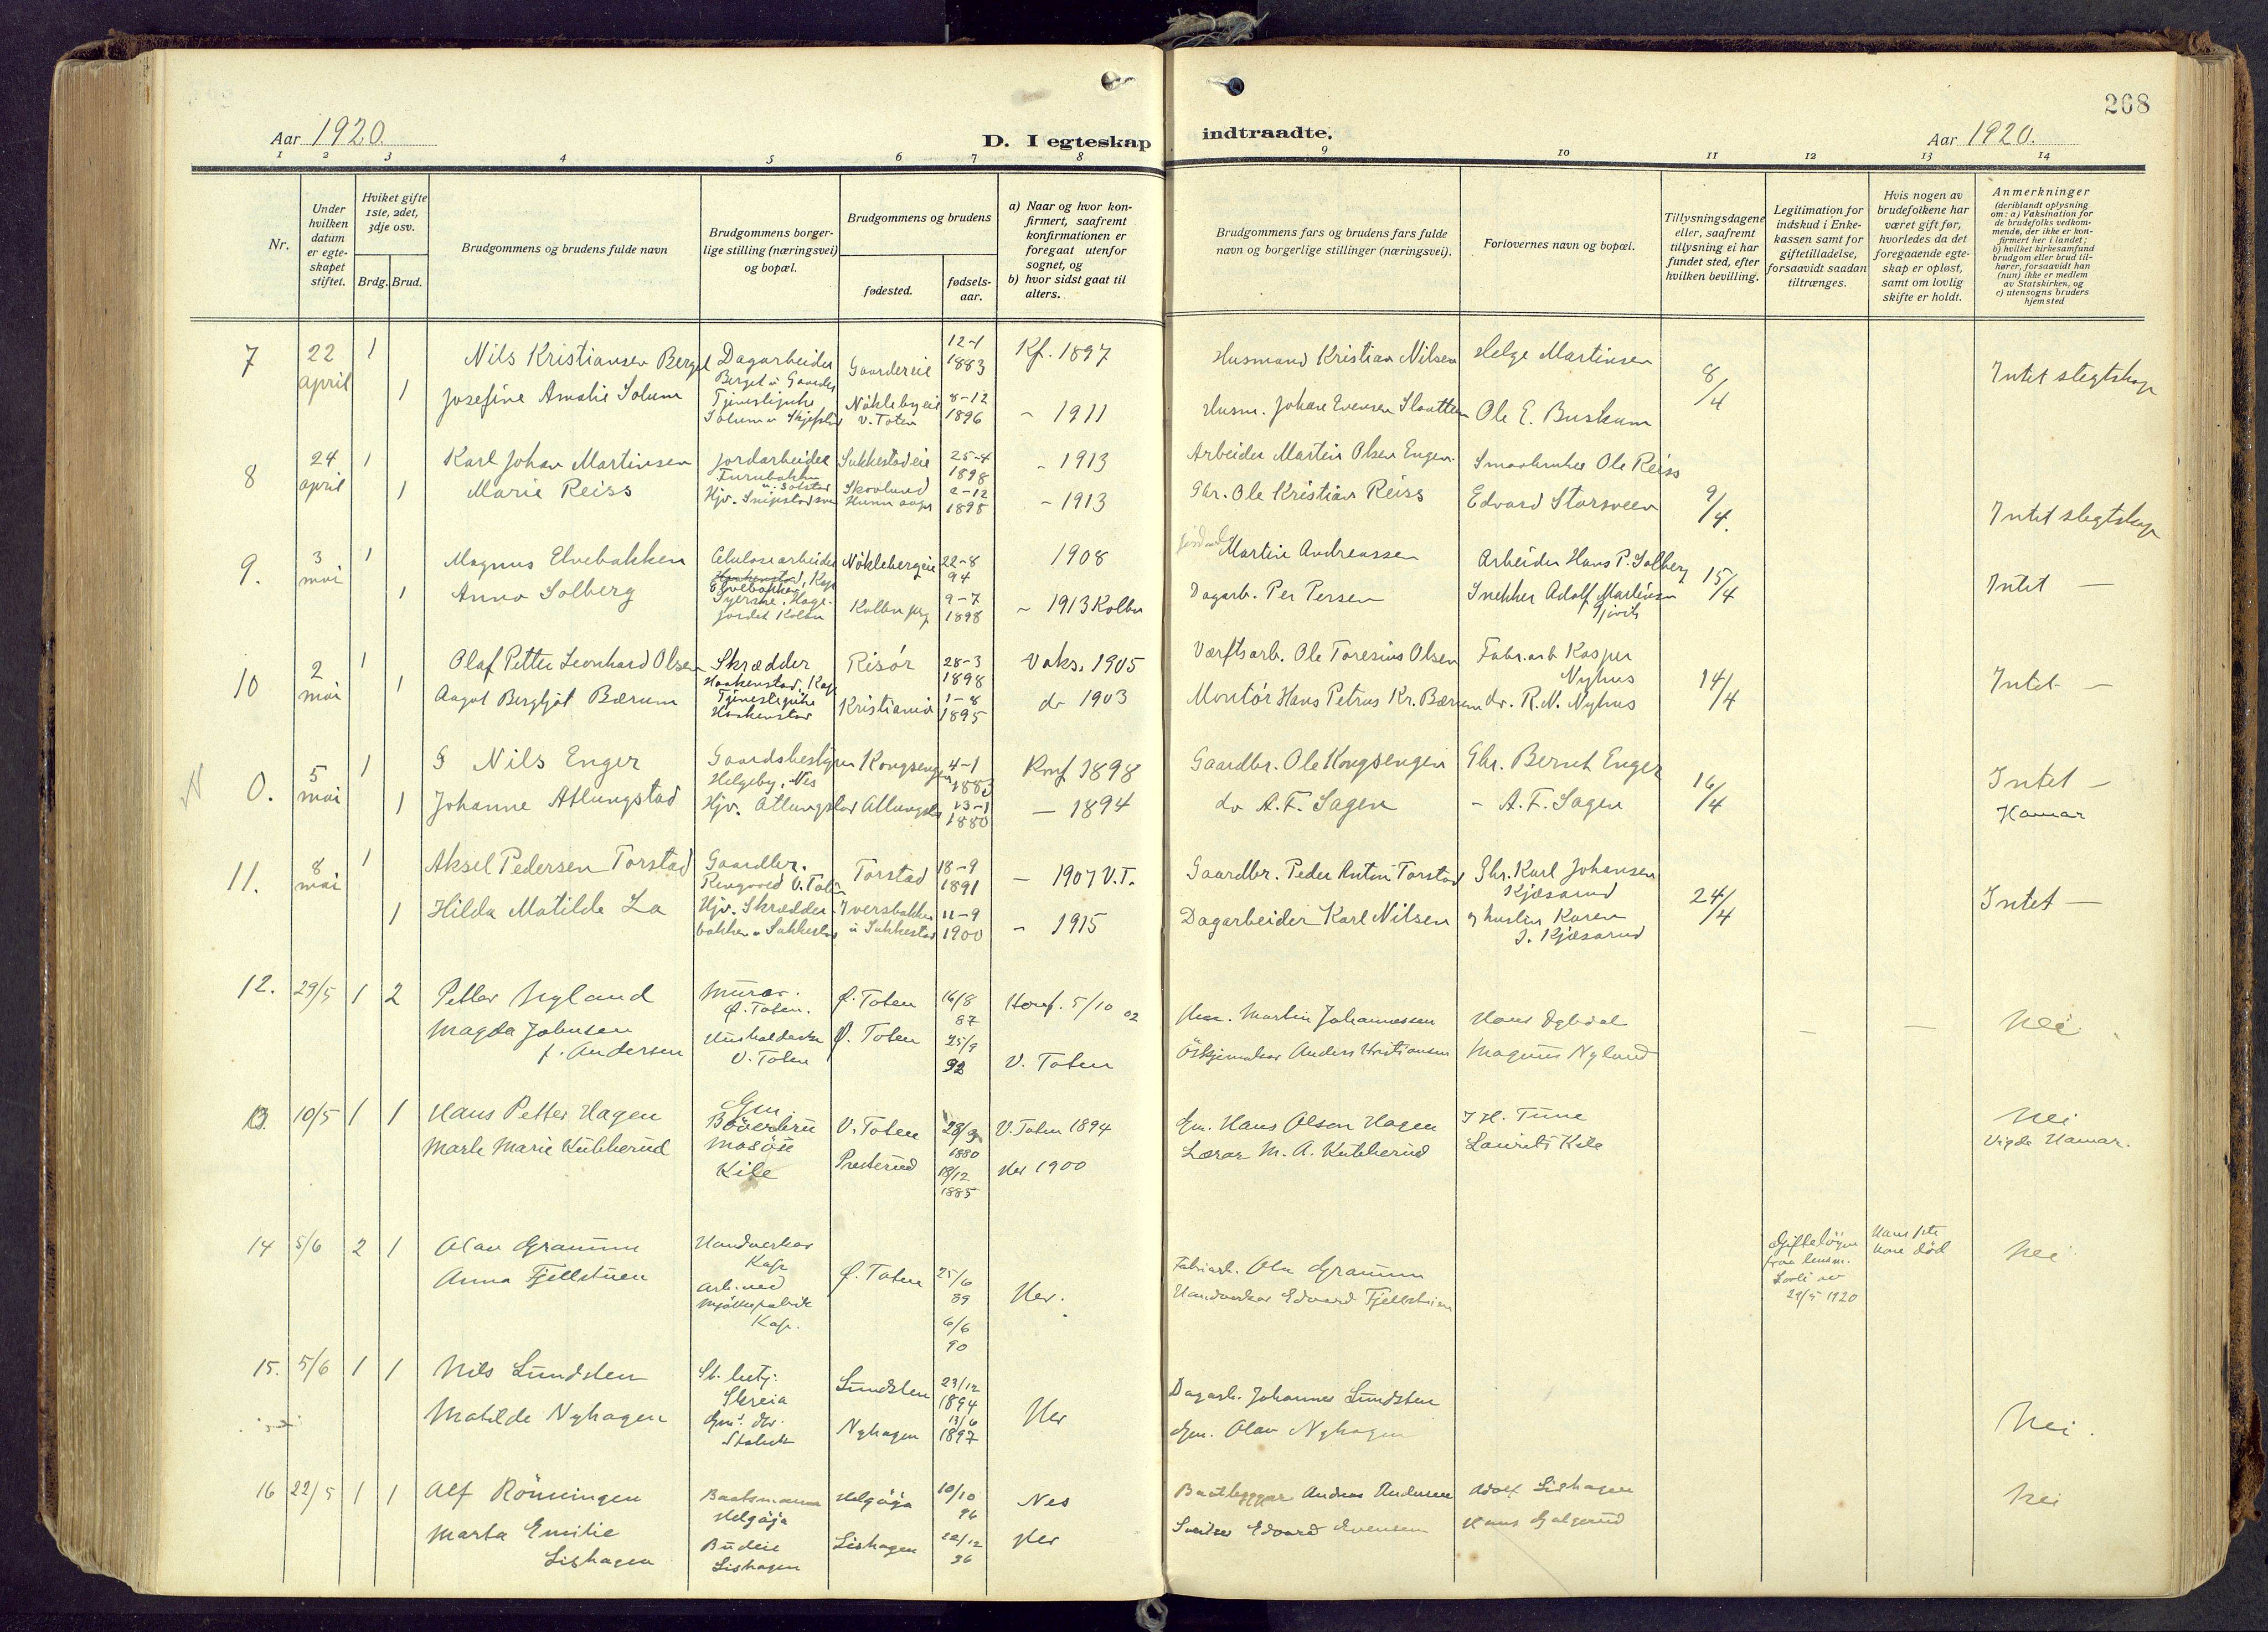 268
Aar 1920.
D. I egteskap indtraadte.
Aar 1920.
1 2 3 4 5 6 7 8 9 10 11 12 13 14
Nr.
Under hvilken datum er egteskapet stiftet.
Hviket gifte 1ste, 2det, 3dje osv.
Brdg. Brud.
Brudgommens og brudens fulde navn
Brudgommens borgerlige stilling (næringsvei) og bopæl.
Brudgommens og brudens
fødested.
fødselsaar.
a) Naar og hvor konfirmert, saafremt konfirmationen er foregaat utenfor sognet, og
b) hvor sidst gaat til alters.
Brudgommens fars og brudens fars fulde navn og borgerlige stillinger (næringsvei).
Forlovernes navn og bopæl.
Tillysningsdagene eller, saafremt tillysning ei har fundet sted, efter hvilken bevilling.
Legitimation for indskud i Enkekassen samt for giftetilladelse, forsaavidt saadan tiltrænges.
Hvis nogen av brudefolkene har været gift før, hvorledes da det foregaaende egteskap er opløst, samt om lovlig skifte er holdt.
Anmerkninger (deriblandt oplysning om: a) Vaksination for de brudefolks vedkommende, der ikke er konfirmert her i landet; b) hvilket kirkesamfund brudgom eller brud tilhører, forsaavidt han (hun) ikke er medlem av Statskirken, og c) utensogns bruders hjemsted
7 22 april 1 Nils Kristiansen Berget Dagarbeider Berget u Gaarder Gaardereie 12-1 1883 Kf. 1897 Husmand Kristian Nilsen Helge Martinsen 8/4 Intet slegtskap
1 Josefine Amalie Solum Tjenestepike Solum u Skjefstad Nöklebyeie V. Toten 8-12 1896 - 1911 Husm. Johan Evensen Ole E. Buskum
8 24 april 1 Karl Johan Martinsen Jordarbeider Furubakken Sukkestadeie 25-4 1898 - 1913 Arbeider Martin Olsen Engen. Smaabruker Ole Reiss 9/4. Intet slegtskap
1 Marie Reiss Hjv. Skovlund Hunn 2-12 1895 - 1913 Gbr. Ole Kristian Reiss Edvard Storsveen
9. 3 mai 1 Magnus Elvebakken Celulosearbeider Haakenstad, Kap Elvebakken Nöklebergeie 22-8 94 1908 Martin Andreassen Arbeider Hans P. Solberg 15/4 Intet —
1 Anna Solberg Kolbu Kolbu 9-7 1898 - 1913 Kolbu Dagarb. Per Persen Snekker Adolf Martinsen Gjövik
10 2 mai 1 Olaf Petter Leonhard Olsen Skrædder Haakenstad, Kap Risör 28-3 1898 Vaks. 1905 Værftsarb. Ole Toresius Olsen Fabr.arb Kasper Nyhus 14/4 Intet —
1 Aagot Bergljot Bærum Tjenestepike Haakenstad Kristiania 1-8 1895 do 1903 Montör Hans Petrus Kr. Bærum do. R. N. Nyhus
0. 5 mai 1 Nils Enger Gaardsbestyrer Helgeby, Nes Kongsengen 4-1 1883 Konf 1898 Gaardbr. Ole Kongsengen Gbr. Bernt Enger 16/4 Intet —
1 Johanne Atlungstad Hjv. Atlungstad Atlungstad 13-1 1880 — 1894 do A. F. Sagen - A. F. Sagen Hamar
11. 8 mai 1 Aksel Pedersen Torstad Gaardbr. Ringvold V. Toten Torstad 18-9 1891 — 1907 V.T. Gaardbr. Peder Anton Torstad Gbr. Karl Johansen Kjøsarud 24/4 Intet —
1 Hilda Matilde La Hjv. Skrædderbakken u Sukkestad Iversbakken u Sukkestad 11-9 1900 - 1915 Dagarbeider Karl Nilsen og hustru Karen J. Kjøsarud
12. 29/5 1 2 Petter Nyland Murar. Ø. Toten. Ø. Toten 16/8 87 Konf. 5/10 02 Martin Johannessen Hans — — Nei
Magda Johnsen f. Andersen Husholderske V. Toten Ø. Toten 25/9 92 V. Toten Anders Kristiansen Magnus Nyland
13. 10/5 1 1 Hans Petter Hagen Gm Böverbru V. Toten 28/9 1880 V. Toten 1894 Gm. Hans Olsen Hagen J H. Tune Nei
Marte Marie Kubberud Masöse Kile Presterud 19/12 1885 Her 1900 Lærar M. A. Kubberud Laurits Kile Vigde Hamar.
14 5/6 2 1 Olav Graunn Handverkar Kap Ø. Toten 25/6 89 Her. Fabriarb. Ole Graunn Giftelöyve fraa lensm. 29/5 1920 Hans fste kone död Nei
Anna Fjellstuen Arb. ved Mjölkefabrik Kap. 6/6 90 Handverkar Edvard Fjellstuen
15. 5/6 1 1 Nils Lundsten St. betj. Skreia Lundsten 23/12 1894 Her Dagarb. Johannes Lundsten Nei.
Matilde Nyhagen Gm. dtr. Nyhagen 13/6 1897 Gm. Olav Nyhagen
16 22/5 1 1 Alf Rönningen Baatsmann Helgöja Helgöja 10/10 96 Nes Baatbyggar Andreas Andersen Adolf Lishagen Nei
Marta Emilie Lishagen Budeie Lishagen Lishagen 20/12 96 Her Edvard Evensen Hans Galgerud